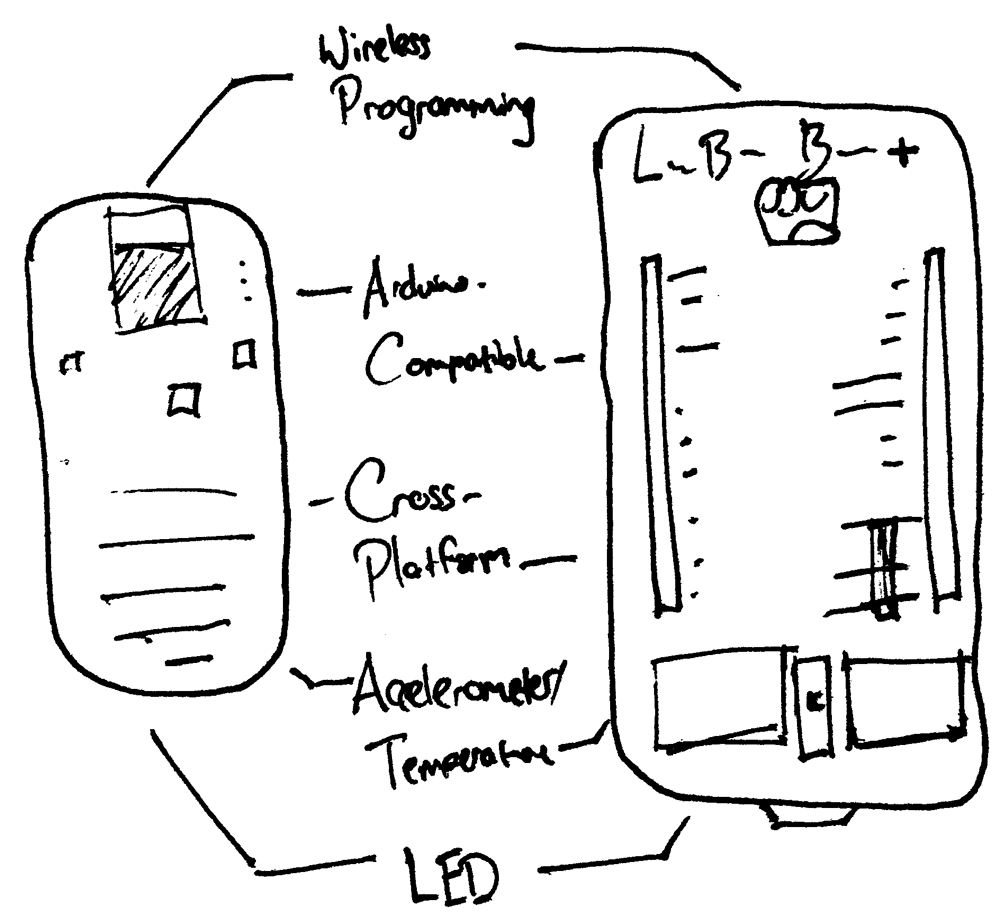 Wireless
Programming
L-B- B-+
Arduino-
Compatible
Cross-
Platform
Accelerometer/
Temperature
LED